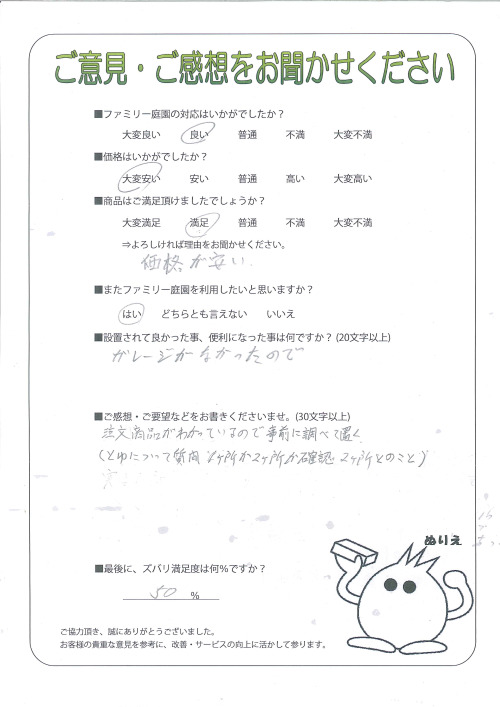 ご意見・ご感想をお聞かせください
■ファミリー庭園の対応はいかがでしたか？
大変良い 良い 普通 不満 大変不満
■価格はいかがでしたか？
大変安い 安い 普通 高い 大変高い
■商品はご満足頂けましたでしょうか？
大変満足 満足 普通 不満 大変不満
⇒よろしければ理由をお聞かせください。
価格が安い.
■またファミリー庭園を利用したいと思いますか？
はい どちらとも言えない いいえ
■設置されて良かった事、便利になった事は何ですか？(20文字以上)
ガレージがなかったので
■ご感想・ご要望などをお書きくださいませ。(30文字以上)
注文商品がわかっているので事前に調べて置く
(とゆについて質問 1ヶ所か2ヶ所か確認 2ヶ所とのこと)
ぬりえ
■最後に、ズバリ満足度は何％ですか？
50 %
ご協力頂き、誠にありがとうございました。
お客様の貴重な意見を参考に、改善・サービスの向上に活かして参ります。